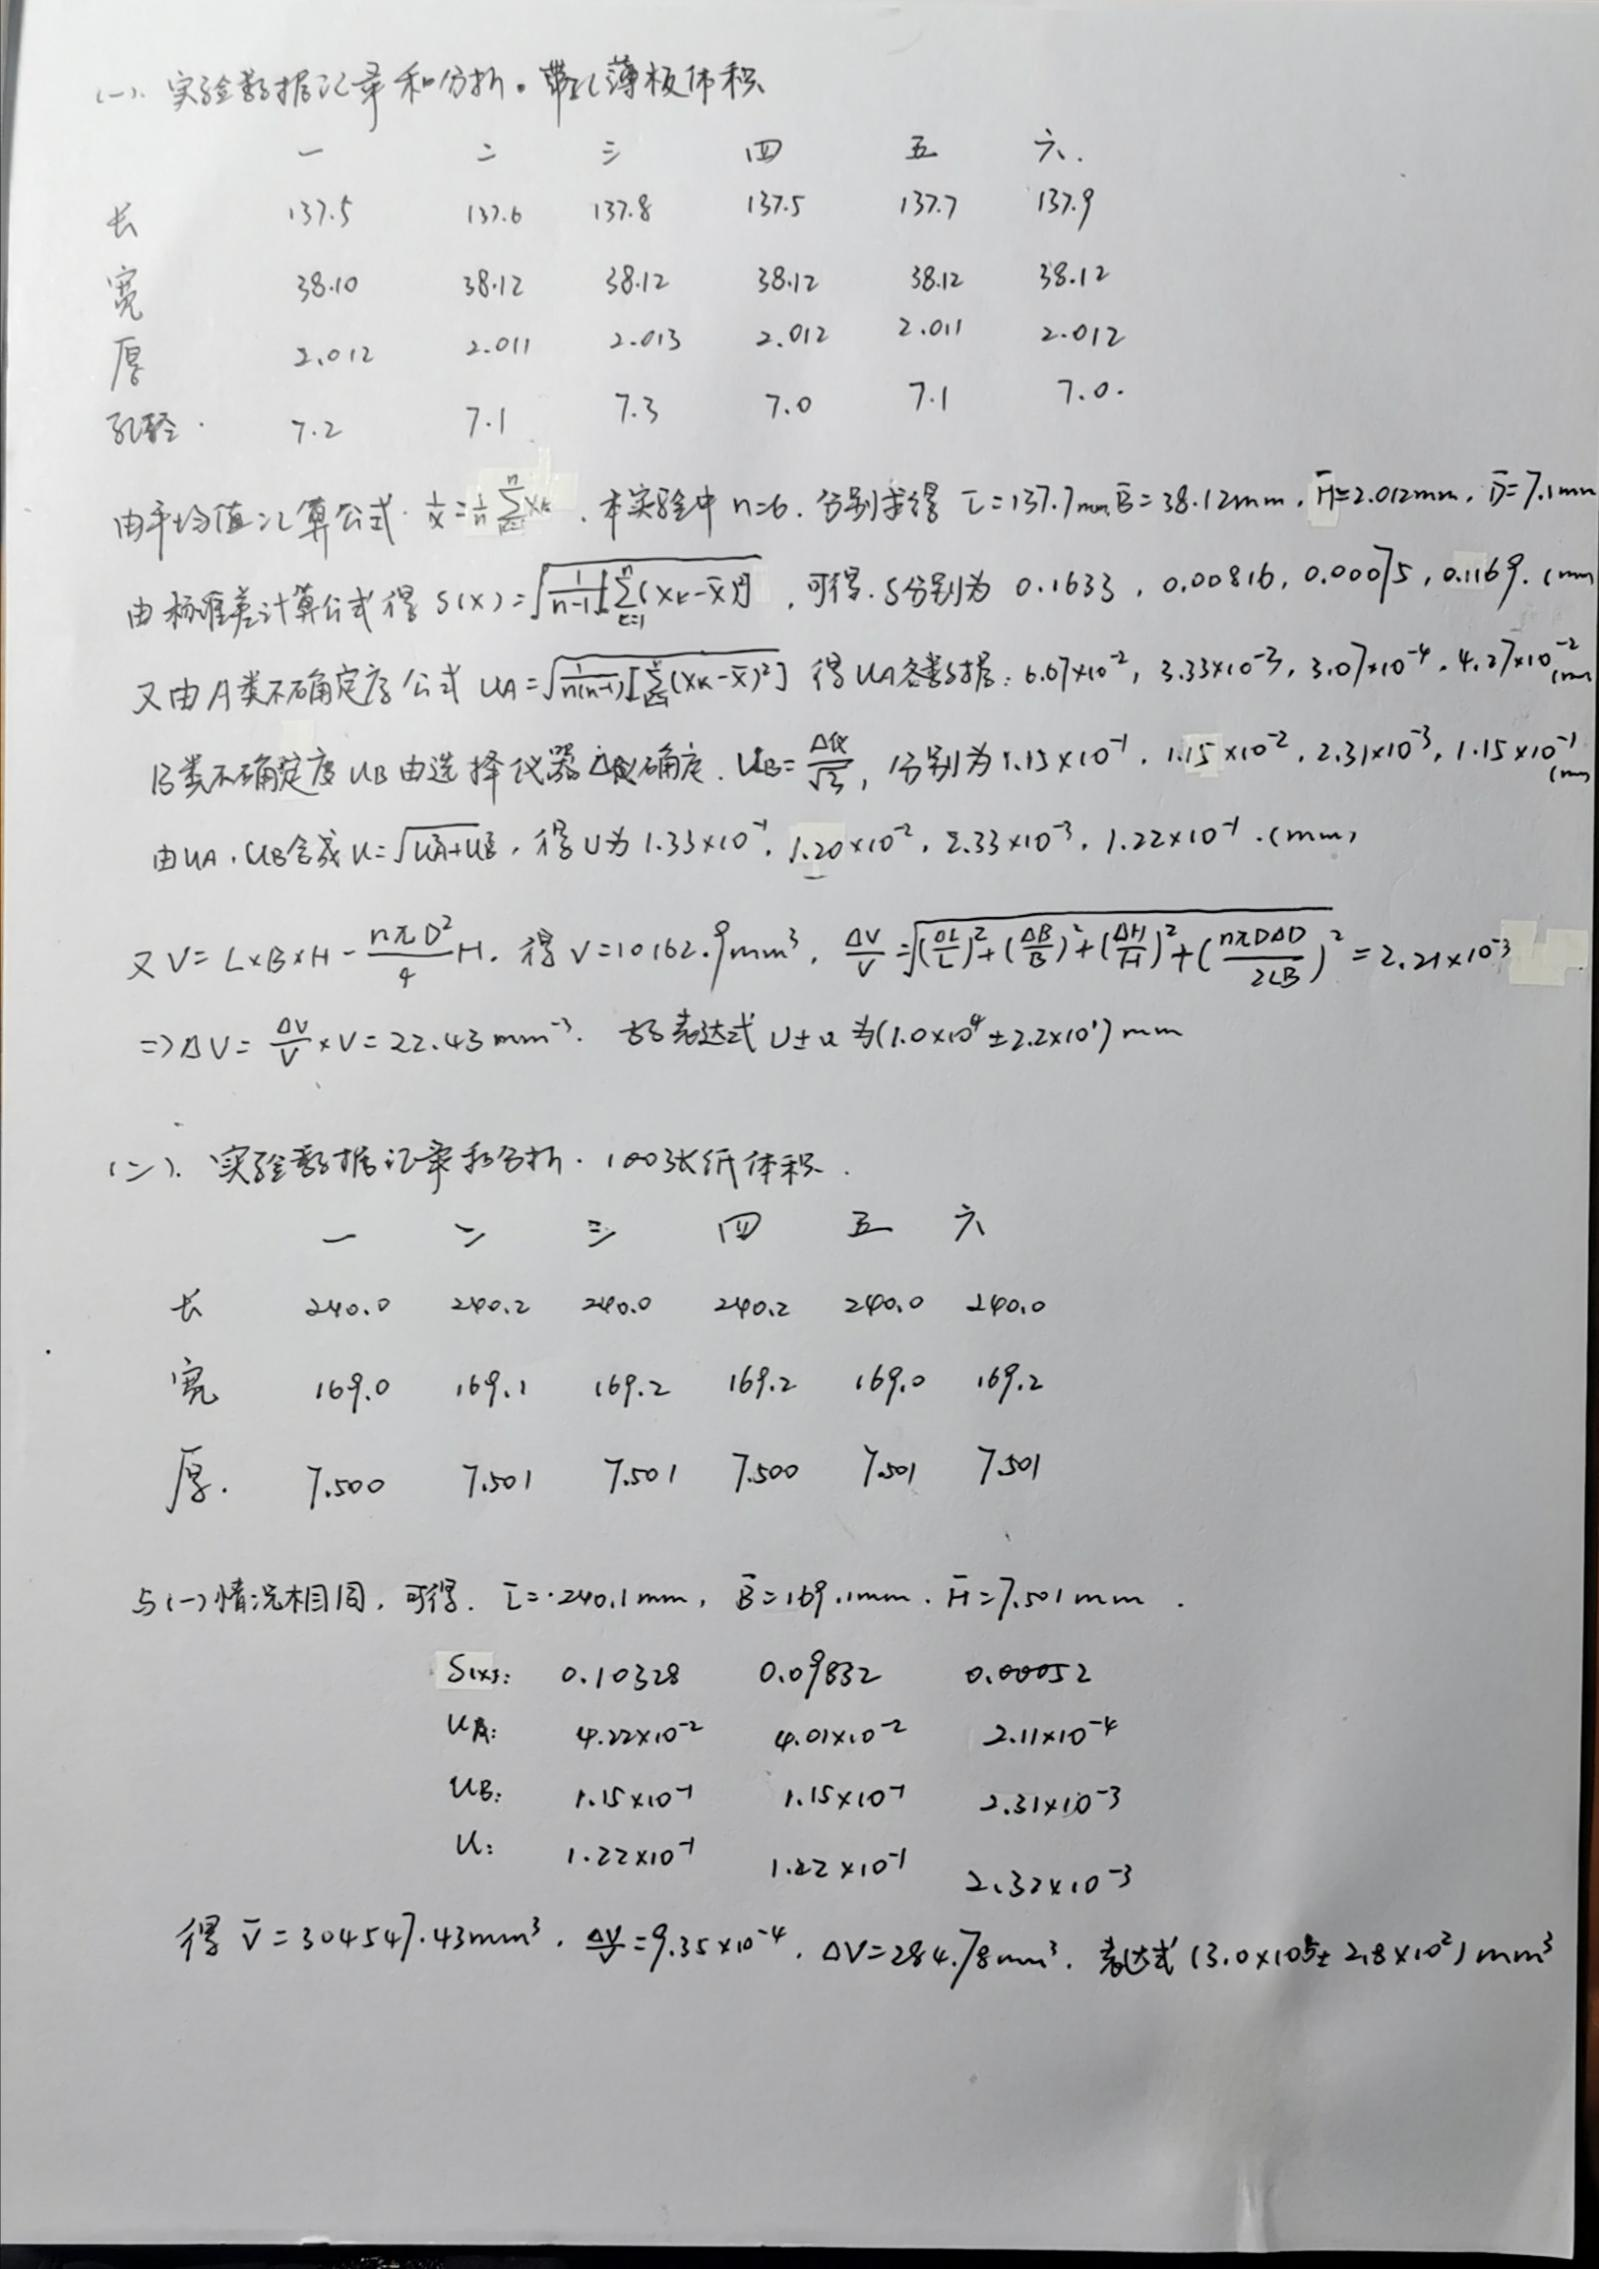 (一). 实验数据记录和分析。带孔薄板体积
一 二 三 四 五 六.
长 137.5 137.6 137.8 137.5 137.7 137.9
宽 38.10 38.12 38.12 38.12 38.12 38.12
厚 2.012 2.011 2.013 2.012 2.011 2.012
孔轻. 7.2 7.1 7.3 7.0 7.1 7.0.
由平均值计算公式. 1/x = 1/n Σ(k=1→n) xₖ. 本实验中 n=6. 分别求得 L̄=137.7mm, B̄=38.12mm, H̄=2.012mm, D̄=7.1mm
由标准差计算公式得 S(x)=√(1/(n-1)[Σ(k=1→n)(xₖ-x̄)²]), 可得. S分别为 0.1633, 0.00816, 0.00075, 0.1169. (mm
又由A类不确定度公式 UA=√(1/(n(n-1))[Σ(xₖ-x̄)²]) 得UA各数据: 6.67×10⁻², 3.33×10⁻³, 3.07×10⁻⁴, 4.77×10⁻² (mm
B类不确定度UB由选择仪器△仪确定. UB=△仪/√3, 分别为1.15×10⁻¹, 1.15×10⁻², 2.31×10⁻³, 1.15×10⁻¹ (mm)
由UA, UB合成 U=√(UA²+UB²), 得U为 1.33×10⁻¹, 1.20×10⁻², 2.33×10⁻³, 1.22×10⁻¹. (mm)
又 V=L×B×H-(nπD²/4)H. 得 V=10162.9mm³, △V/V=√((△L/L)²+(△B/B)²+(△H/H)²+(nπD△D/2LB)²)=2.21×10⁻³
=>△V=△V/V×V=22.43mm⁻³. 故表达式U±u为(1.0×10⁴±2.2×10¹)mm
(二). 实验数据记录和分析. 100张纸体积.
一 二 三 四 五 六
长 240.0 240.2 240.0 240.2 240.0 240.0
宽 169.0 169.1 169.2 169.2 169.0 169.2
厚. 7.500 7.501 7.501 7.500 7.501 7.501
与(一)情况相同, 可得. L̄=240.1mm, B̄=169.1mm. H̄=7.501mm.
S(x): 0.10328 0.09832 0.00052
UA: 4.22×10⁻² 4.01×10⁻² 2.11×10⁻⁴
UB: 1.15×10⁻¹ 1.15×10⁻¹ 2.31×10⁻³
U: 1.22×10⁻¹ 1.22×10⁻¹ 2.32×10⁻³
得 V̄=304547.43mm³. △V/V=9.35×10⁻⁴. △V=284.78mm³. 表达式(3.0×10⁵±2.8×10²)mm³